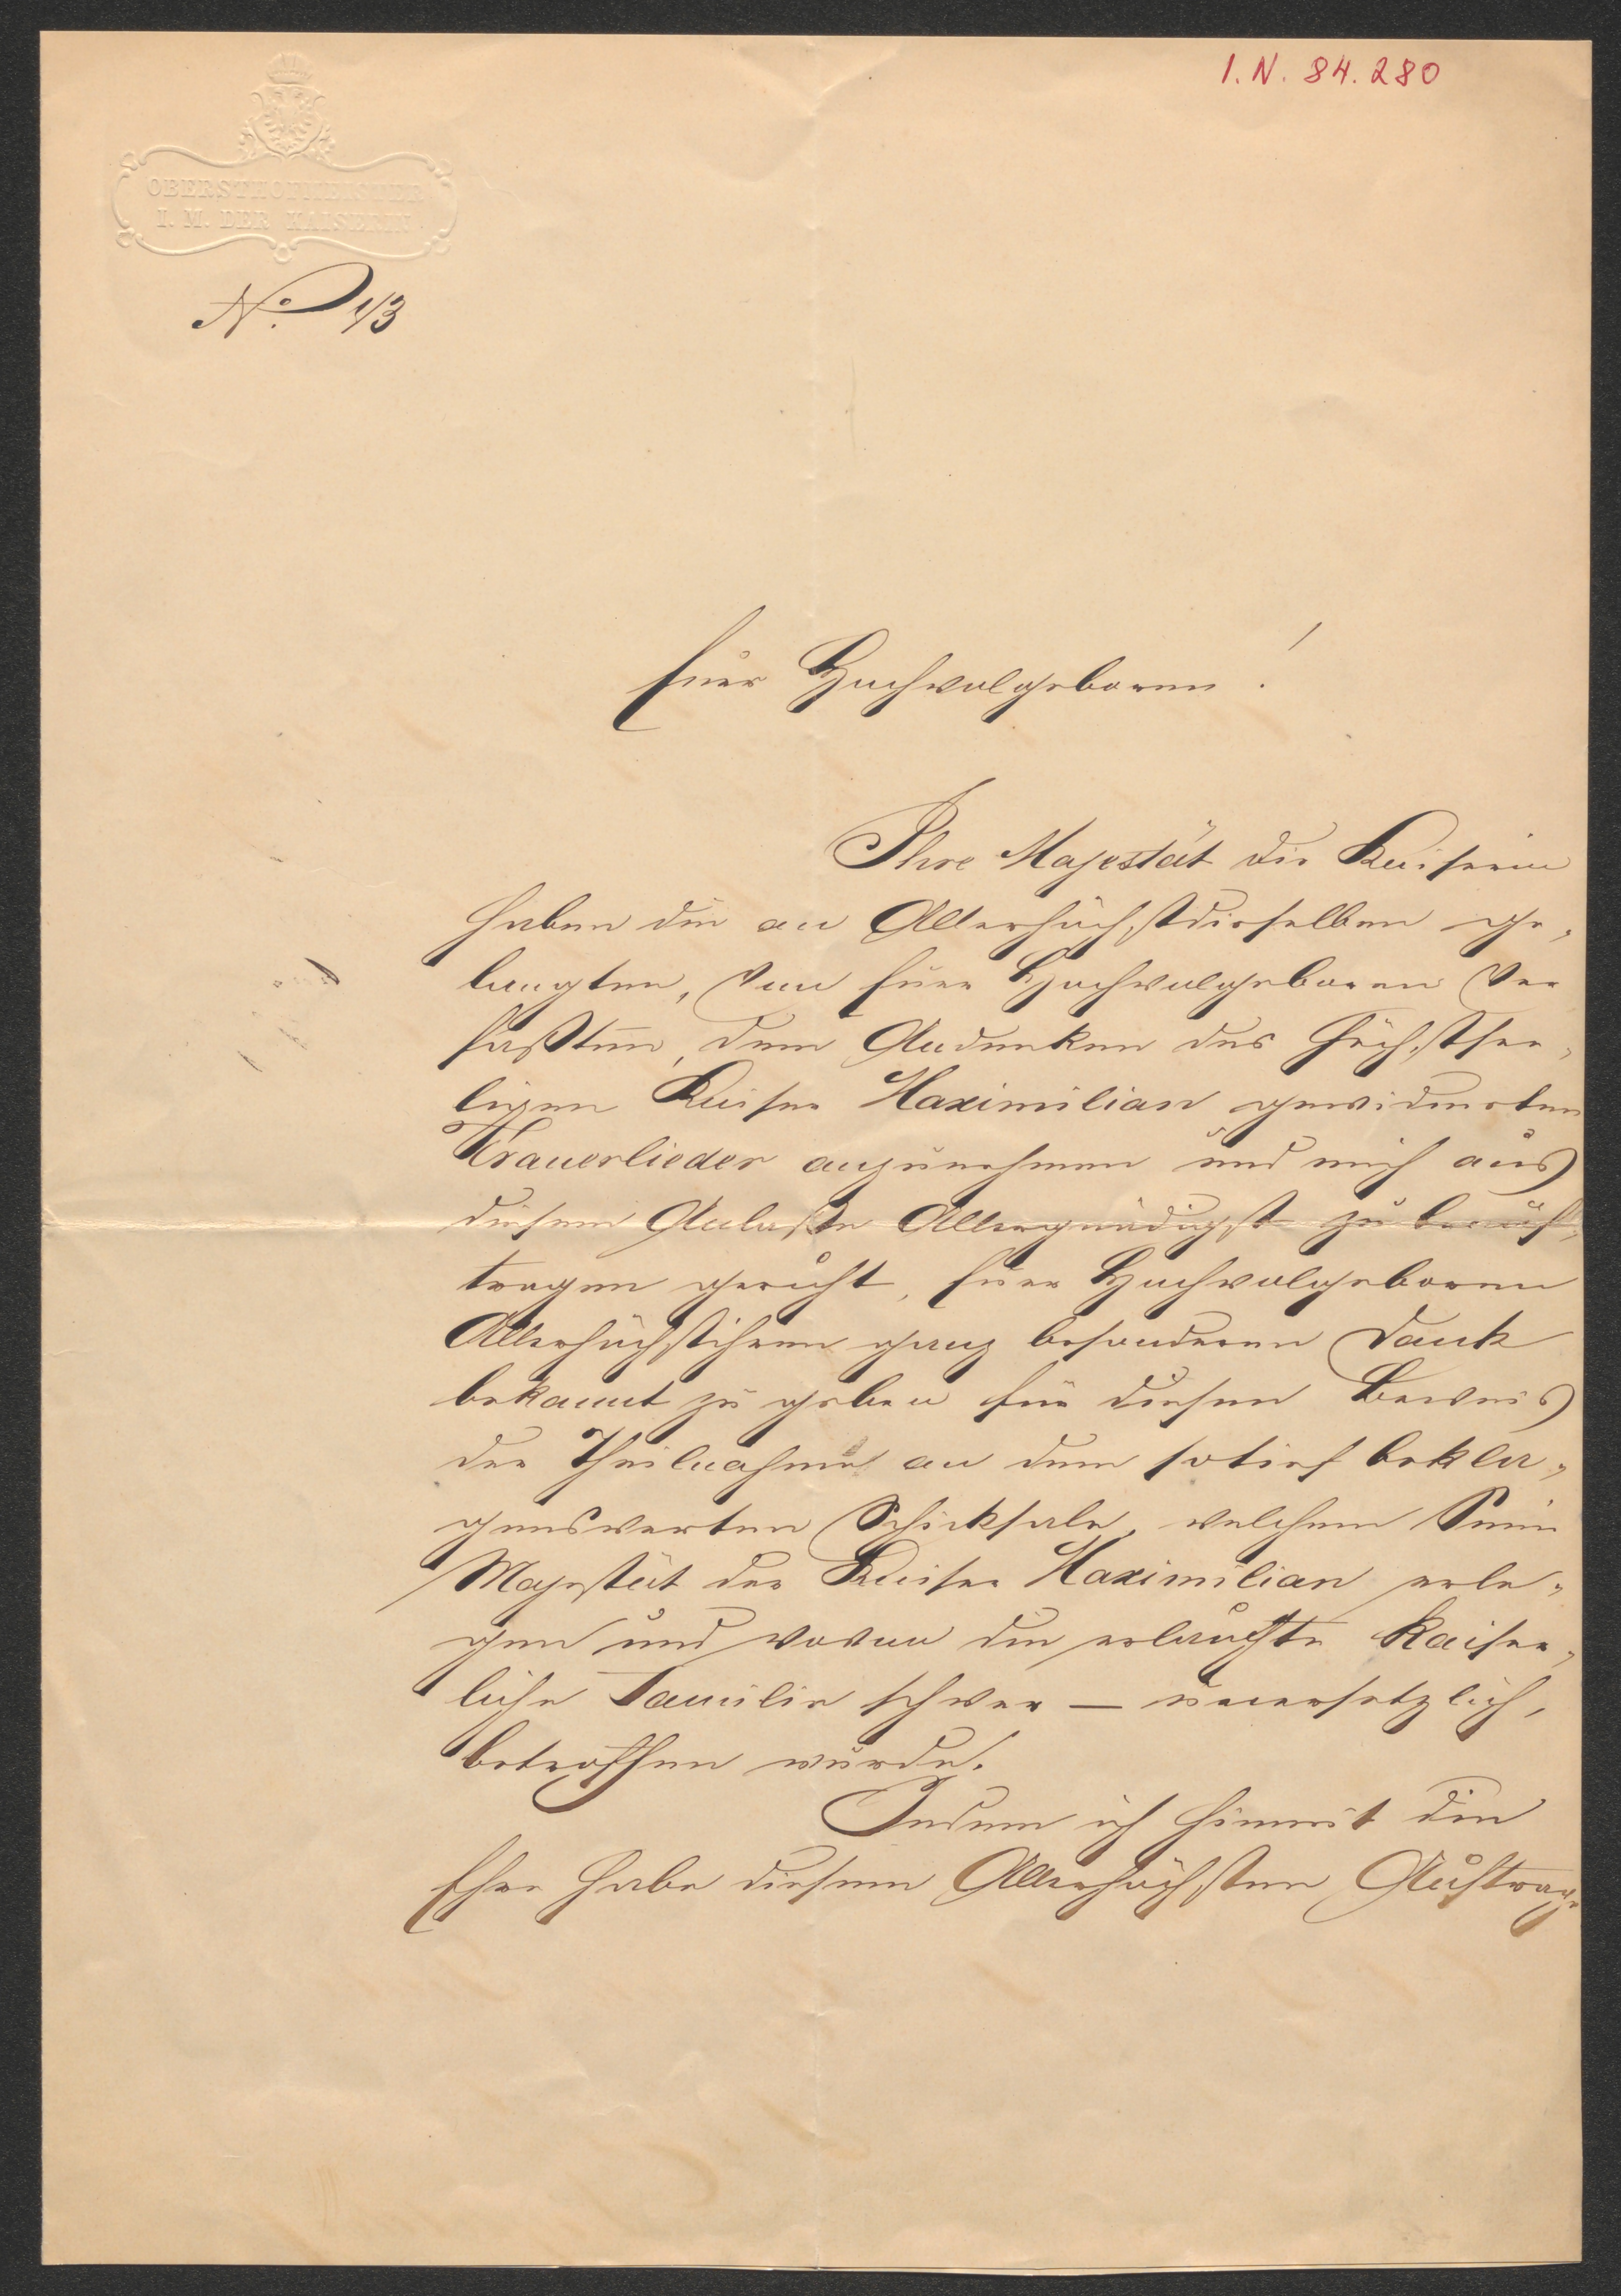 I. N. 84.280
OBERSTHOFMEISTER
I. M. DER KAISERIN
No. 1/3
Euer Hochwolgeboren!
Ihre Majestät die Kaiserin
haben die an Allerhöchstdieselben ge-
langten, von Euer Hochwolgeboren ver
faßten, dem Andenken des höchstsee-
ligen Kaiser Maximilian gewidmeten
Trauerlieder anzunehmen und mich aus
diesem Anlaße Allergnädigst zu beauf-
tragen geruht, Euer Hochwolgeboren
Allerhöchstihren ganz besonderen Dank
bekannt zu geben für diesen Beweis
der Theilnahme an dem so tief bekla-
genswerten Schicksale, welchem Seine
Majestät der Kaiser Maximilian erle-
gen und wovon die erlauchte kaiser-
liche Familie schwer — unersetzlich,
betroffen wurde.
Indem ich hiemit die
Ehre habe diesem Allerhöchsten Auftrage